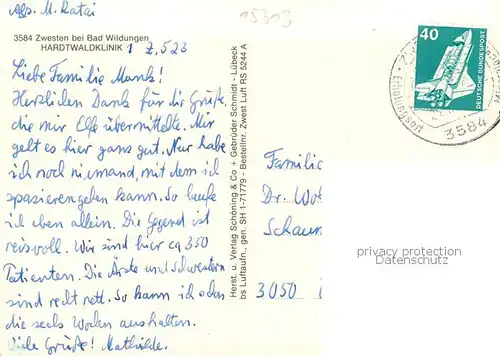 Abs. M. Ratai
15313
3584 Zwesten bei Bad Wildungen
HARDTWALDKLINIK 1 Z, 523
Liebe Familie
Herzlichen Dank für die Grüße,
die mir Elfe übermittelte. Mir
geht es hier ganz gut. Nur habe
ich noch niemand, mit dem ich
spazierengehen kann. So laufe
ich eben allein. Die Gegend ist
reizvoll. Wir sind hier ca 350
Patienten. Die Ärzte und Schwestern
sind recht nett. So kann ich schon
die sechs Wochen aushalten.
Viele Grüße! Mathilde.
Herst. u. Verlag Schöning & Co + Gebrüder Schmidt - Lübeck
bs Luftaufn., gen. SH 1-71779 - Bestellnr. Zwest Luft RS 5244 A
40
DEUTSCHE BUNDESPOST
3584
Familie
Dr.
Schaum
3050
privacy protection
Datenschutz